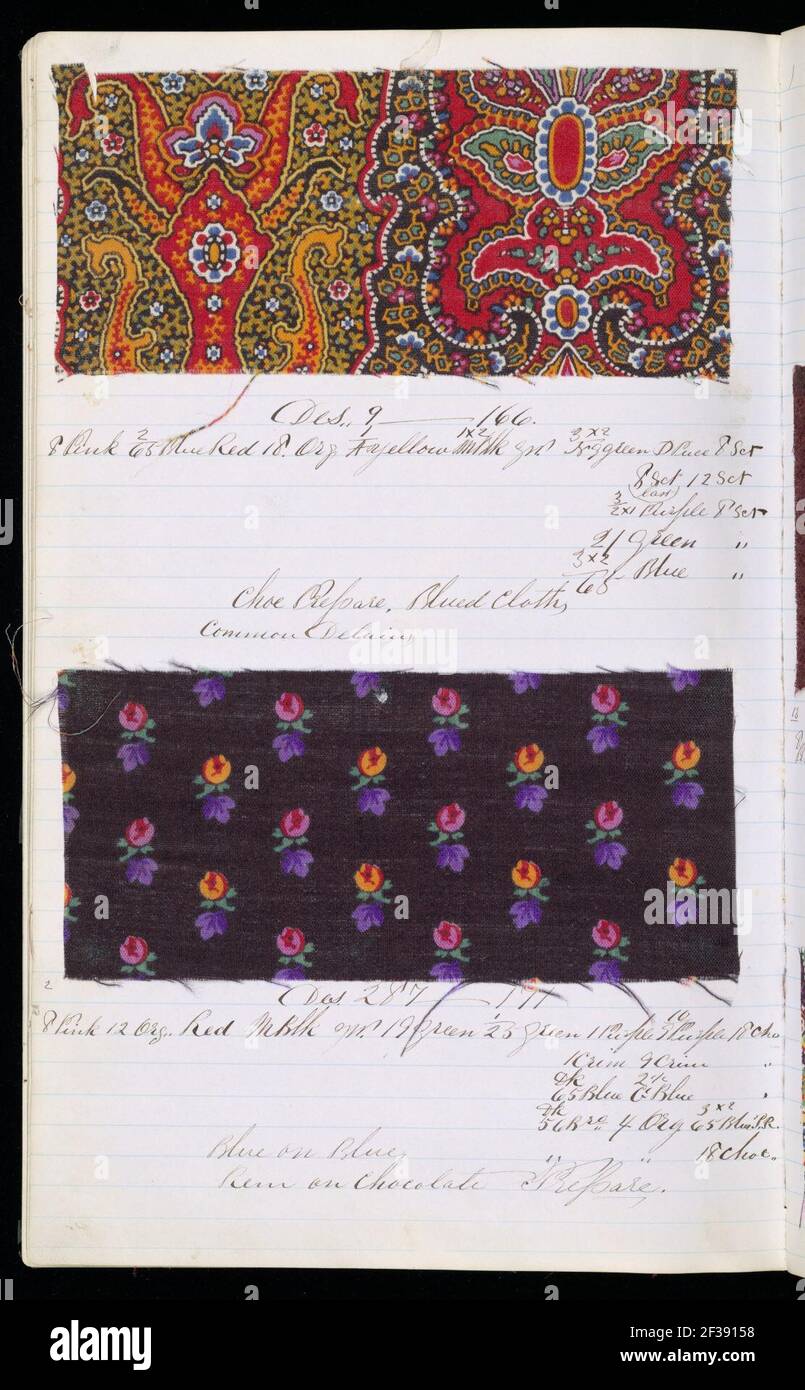 Des. 9 — 166.
8 Pink 2/65 Blue Red 18. Org yellow 1x2 M Blk 3x2 green 8 Set
8 Set 12 Set
3/2x1 Purple 8 Set
21 Green "
3x2/65 Blue "
Choc Prepare. Blued Cloth,
Common Delain,
Des. 287 — 191
2
8 Pink 12 Org. Red M Blk 19 green 23 green 1 Purple 9 Purple 18 Cho
1 Crim 9 Crim "
Dk
65 Blue 6 Blue "
Dk 3x2
56 4 Org 65 Blue P.R.
Blue on Blue, " " 18 Choc.
Rem on Chocolate Prepare.
alamy
Image ID: 2F39158
www.alamy.com